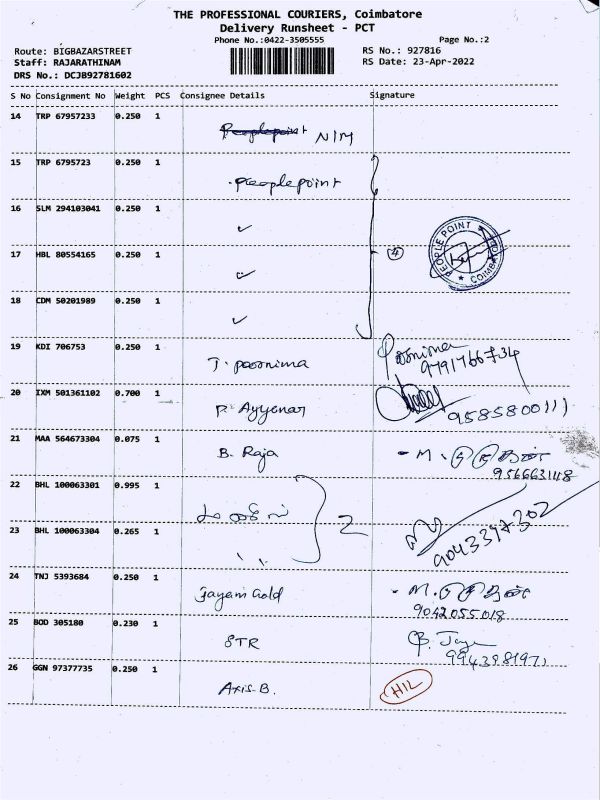 THE PROFESSIONAL COURIERS, Coimbatore
Delivery Runsheet - PCT
Phone No.:0422-3505555
Page No.:2
Route: BIGBAZARSTREET
RS No.: 927816
Staff: RAJARATHINAM
RS Date: 23-Apr-2022
DRS No.: DCJB92781602
S No Consignment No Weight PCS Consignee Details Signature
14 TRP 67957233 0.250 1
Peoplepoint NIM
15 TRP 6795723 0.250 1
peoplepoint
16 SLM 294103041 0.250 1
✓
17 HBL 80554165 0.250 1
✓
4
PEOPLE POINT
COIMBATORE
18 CDM 50201989 0.250 1
✓
19 KDI 706753 0.250 1
T. poornima
Poornima
9791766734
20 IXM 501361102 0.700 1
P. Ayyenar
9585800111
21 MAA 564673304 0.075 1
B. Raja
9566631118
22 BHL 100063301 0.995 1
2
23 BHL 100063304 0.265 1
9043397302
24 TNJ 5393684 0.250 1
Jayam Gold
9042055018
25 BOD 305180 0.230 1
STR
9943981971
26 GGN 97377735 0.250 1
Axis B.
HIL